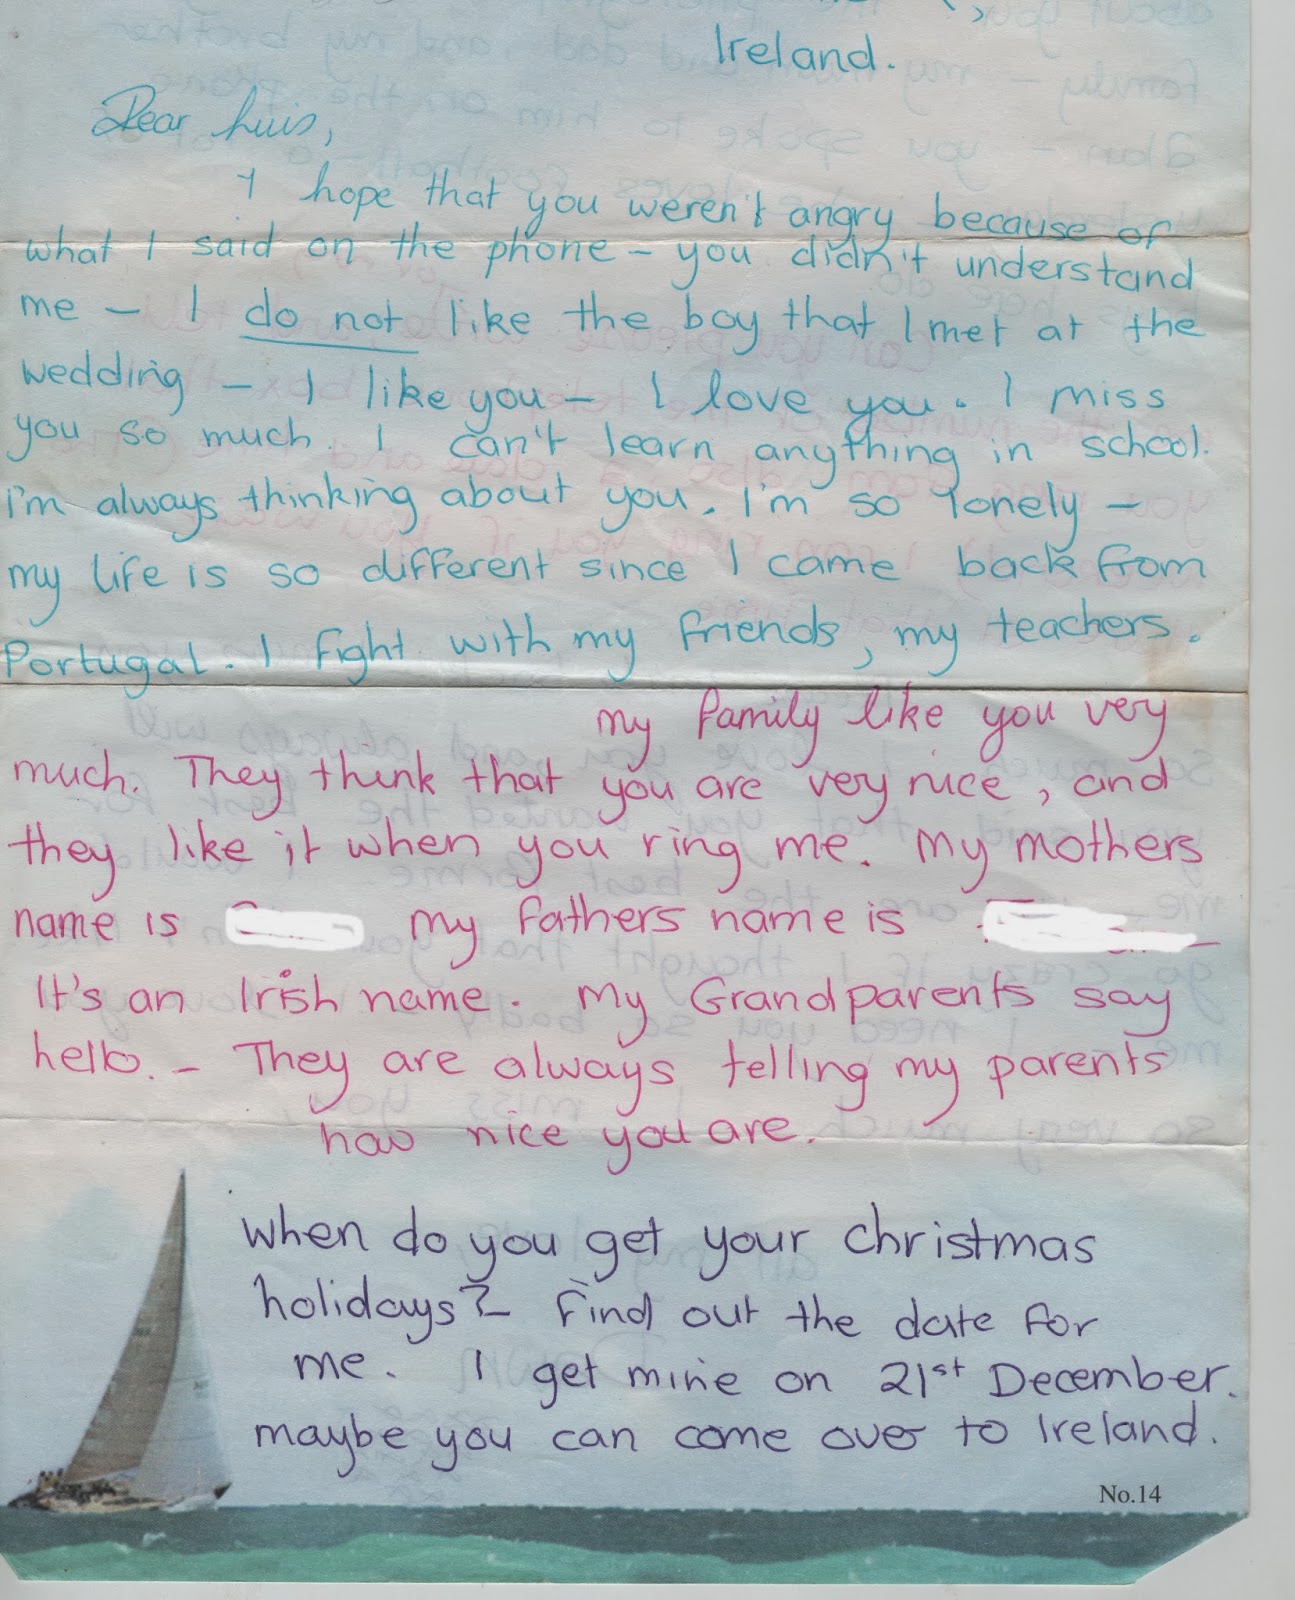 Ireland.
Dear Luis,
I hope that you weren't angry because of
what I said on the phone – you didn't understand
me – I do not like the boy that I met at the
wedding – I like you – I love you. I miss
you so much. I can't learn anything in school.
I'm always thinking about you. I'm so lonely –
my life is so different since I came back from
Portugal. I fight with my friends, my teachers.
my family like you very
much. They think that you are very nice, and
they like it when you ring me. My mothers
name is my fathers name is
It's an Irish name. My Grandparents say
hello. – They are always telling my parents
how nice you are.
When do you get your christmas
holidays? Find out the date for
me. I get mine on 21st December.
maybe you can come over to Ireland.
No.14